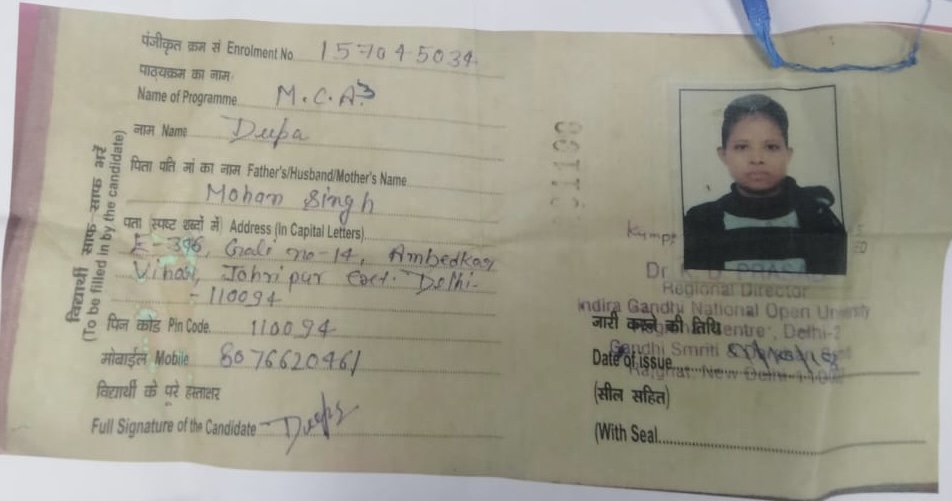 पंजीकृत क्रम सं Enrolment No. 157045034
पाठ्यक्रम का नाम
Name of Programme M.C.A.
नाम Name Deepa
पिता पति मां का नाम Father's/Husband/Mother's Name
Mohan Singh
पता (स्पष्ट शब्दों में) Address (In Capital Letters)
E-396, Gali no-14, Ambedkar
Vihar, Johripur Ext. Delhi-
-110094
पिन कोड Pin Code. 110094
मोबाईल Mobile 8076620461
विद्यार्थी के पूरे हस्ताक्षर
Full Signature of the Candidate Deepa
विद्यार्थी साफ-साफ भरें
(To be filled in by the candidate)
Dr. K. D. PRASAD
Regional Director
Indira Gandhi National Open University
जारी करने की तिथि
Centre, Delhi-2
Gandhi Smriti
Date of issue
Rajghat, New Delhi
(सील सहित)
(With Seal